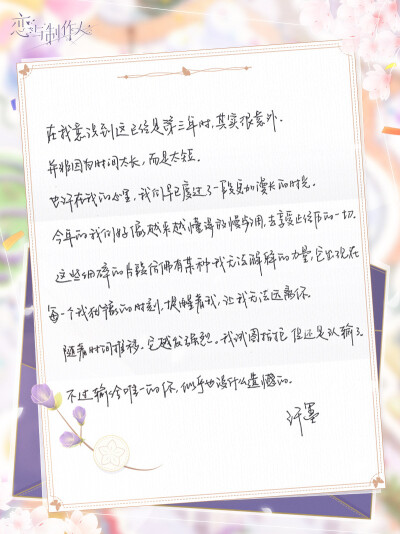 恋与制作人
在我意识到这已经是第三年时,其实很意外。
并非因为时间太长,而是太短。
也许在我的心里,我们早已度过了一段更加漫长的时光。
今年的我们好像越来越懂得放慢步调,去享受止信后的一切。
这些细碎的片段仿佛有某种我无法解释的力量,它出现在
每一个我犹豫的时刻,提醒着我,让我无法远离你。
随着时间推移,它越发强烈。我试图抗拒,但还是认输了。
不过输给唯一的你,似乎也没什么遗憾的。
许墨